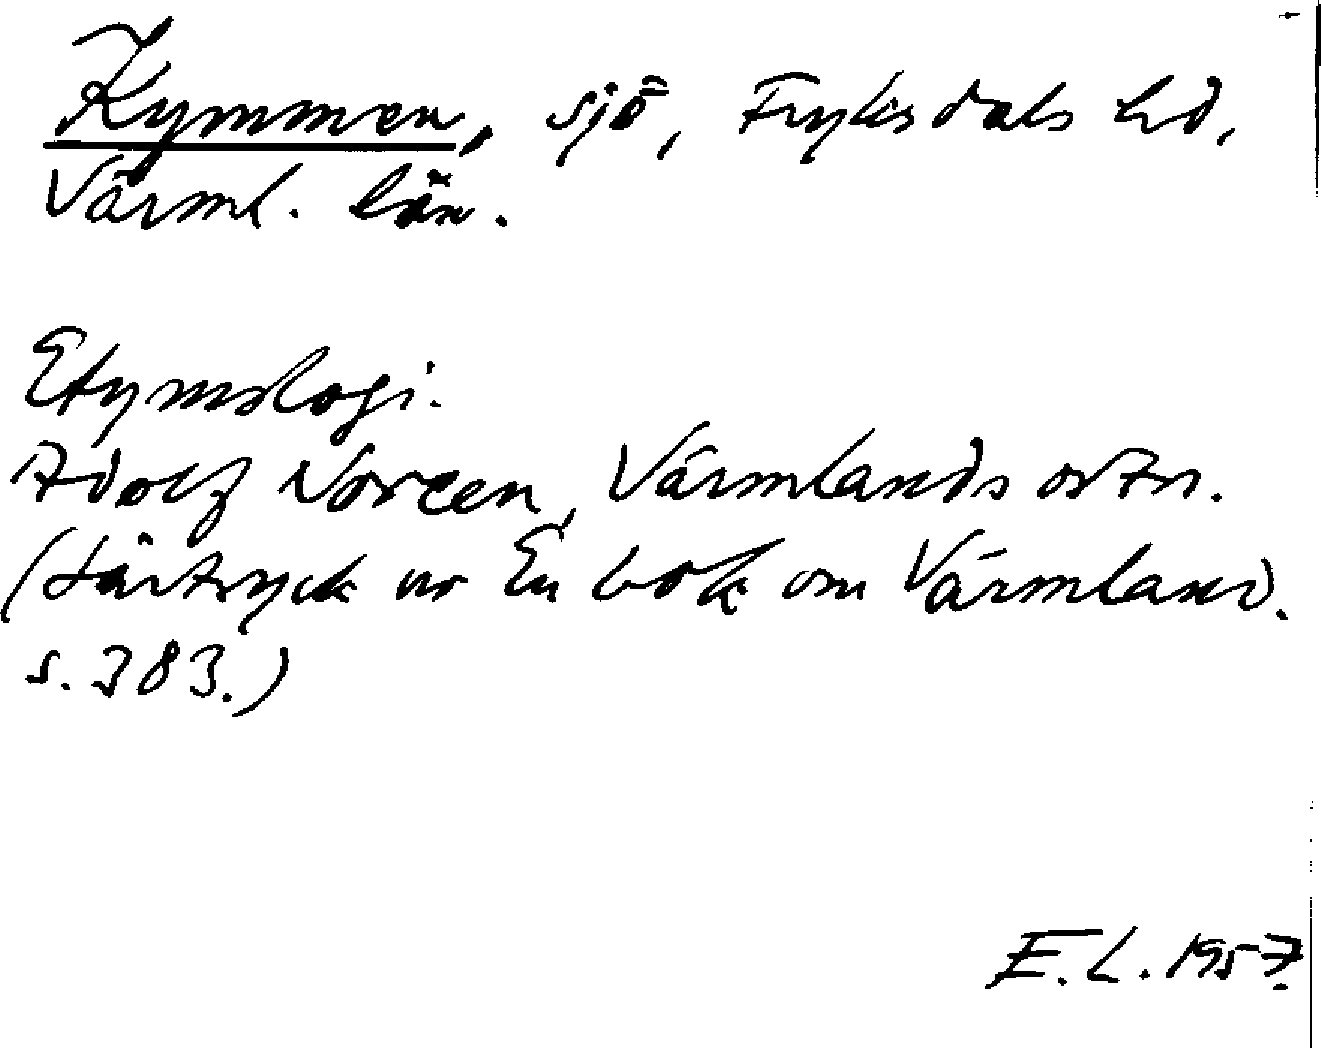 Kymmen, sjö, Fryksdals hd,
Värml. län.
Etymologi.
Adolf Noreen, Värmlands ortn.
(Särtryck ur En bok om Värmland.
s. 383.)
E.L. 1957.